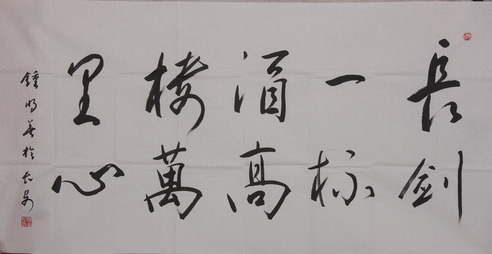 長劍
一杯
酒高
樓萬
里心
鍾明善於長安